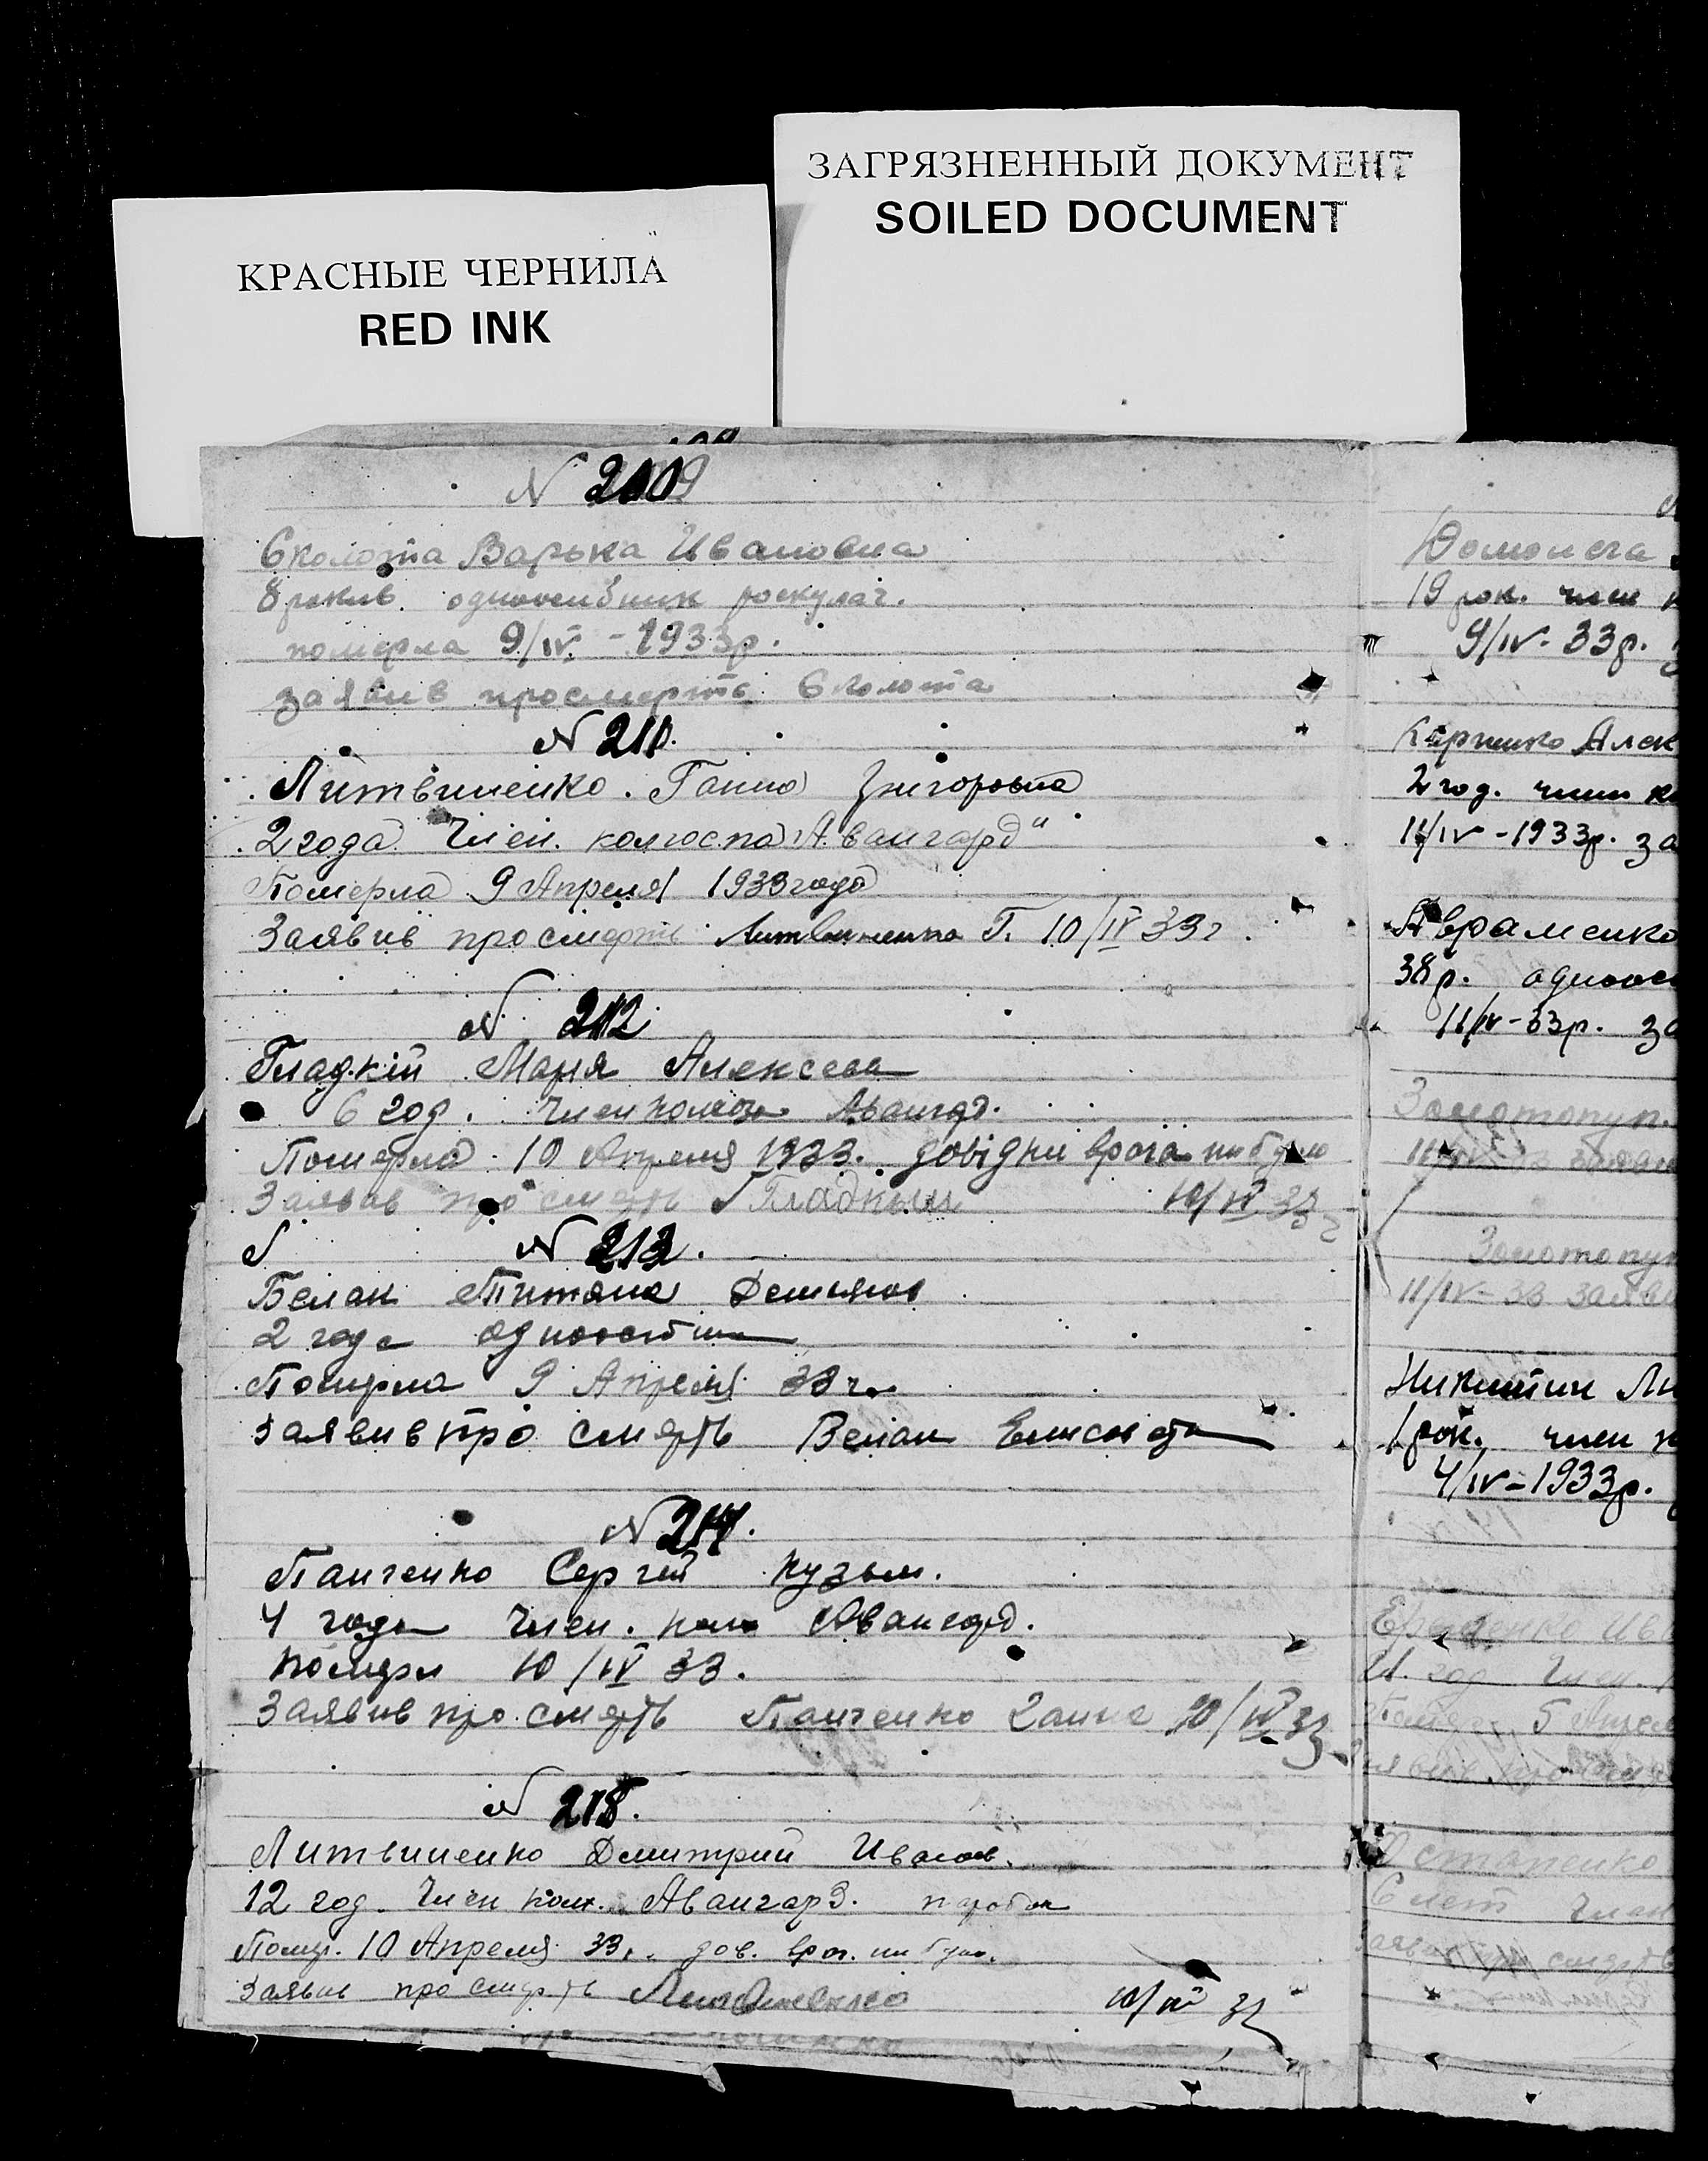 ЗАГРЯЗНЕННЫЙ ДОКУМЕНТ
SOILED DOCUMENT
КРАСНЫЕ ЧЕРНИЛА
RED INK
N
Сколота Варька Ивановна
8 років. одноосібник роскулач.
померла 9/IV - 1933р.
заявив просмерть Сколота
N 211.
Литвиненко. Ганна Григоровна
2 года Член. колгоспа „Авангард"
Померла 9 Апреля 1933 года
Заявив просмерть Литвиненко Г. 10/IV 33г.
N 212
Гладкій Мария Алексеев
6 год. Член Авангард.
Померла 10 Апреля 1933. довідки врача не було
Заявив про смерть Гладкый 10/IV 33г
N 213.
Белан Титяна Демьянов
2 года одноособник
Померла 9 Апреля 33г.
Заявив про смерть Белан Елисовета
N 214.
Панченко Сергей Кузьм.
4 года Член. кол Авангард.
помер 10/IV 33.
Заявив про смерть Панченко 10/IV 33
N 215.
Литвиненко Дмитрий Иванов.
12 год. Член колх. Авангард.
Помер. 10 Апреля 33г. дов. врач. не було.
Заявив про смерть Литвиненко 10/IV 33
19 рок. член к
9/IV- 33р.
Карпенко Алек
2 год. член ко
11/IV -1933р. за
Авраменко
38р. одноос
11/IV-33р. за
Золотопуп.
Золотопуп
11/IV-33 заяви
Никитин Ли
1 рок. член к
4/IV-1933р.
Еременко Ива
год Член.
5 Апрел
Остапенко
6 лет Член